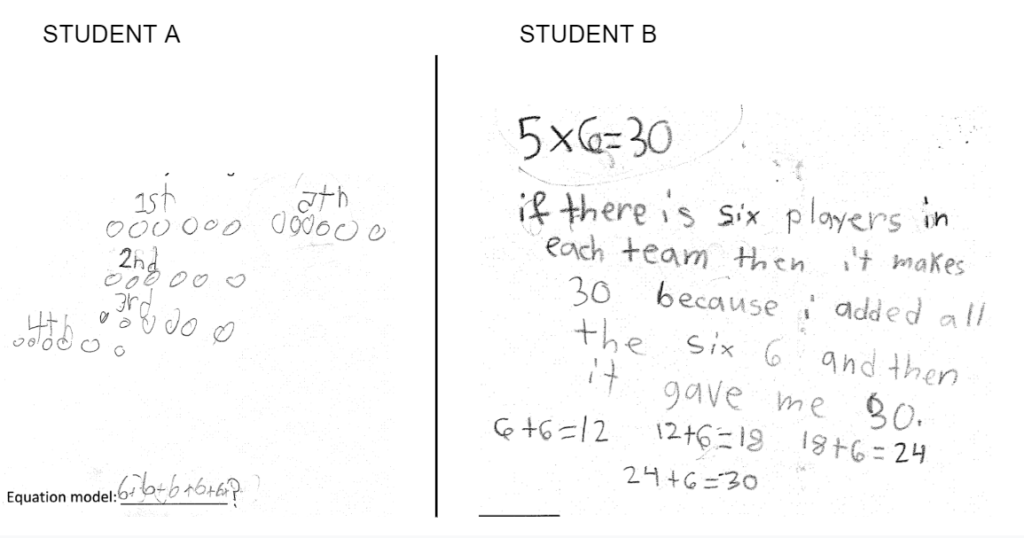 STUDENT A
1st
2nd
3rd
4th
Equation model: 6+6+6+6+6=?
STUDENT B
5×6=30
if there is six players in
each team then it makes
30 because i added all
the six 6 and then
it gave me 30.
6+6=12 12+6=18 18+6=24
24+6=30